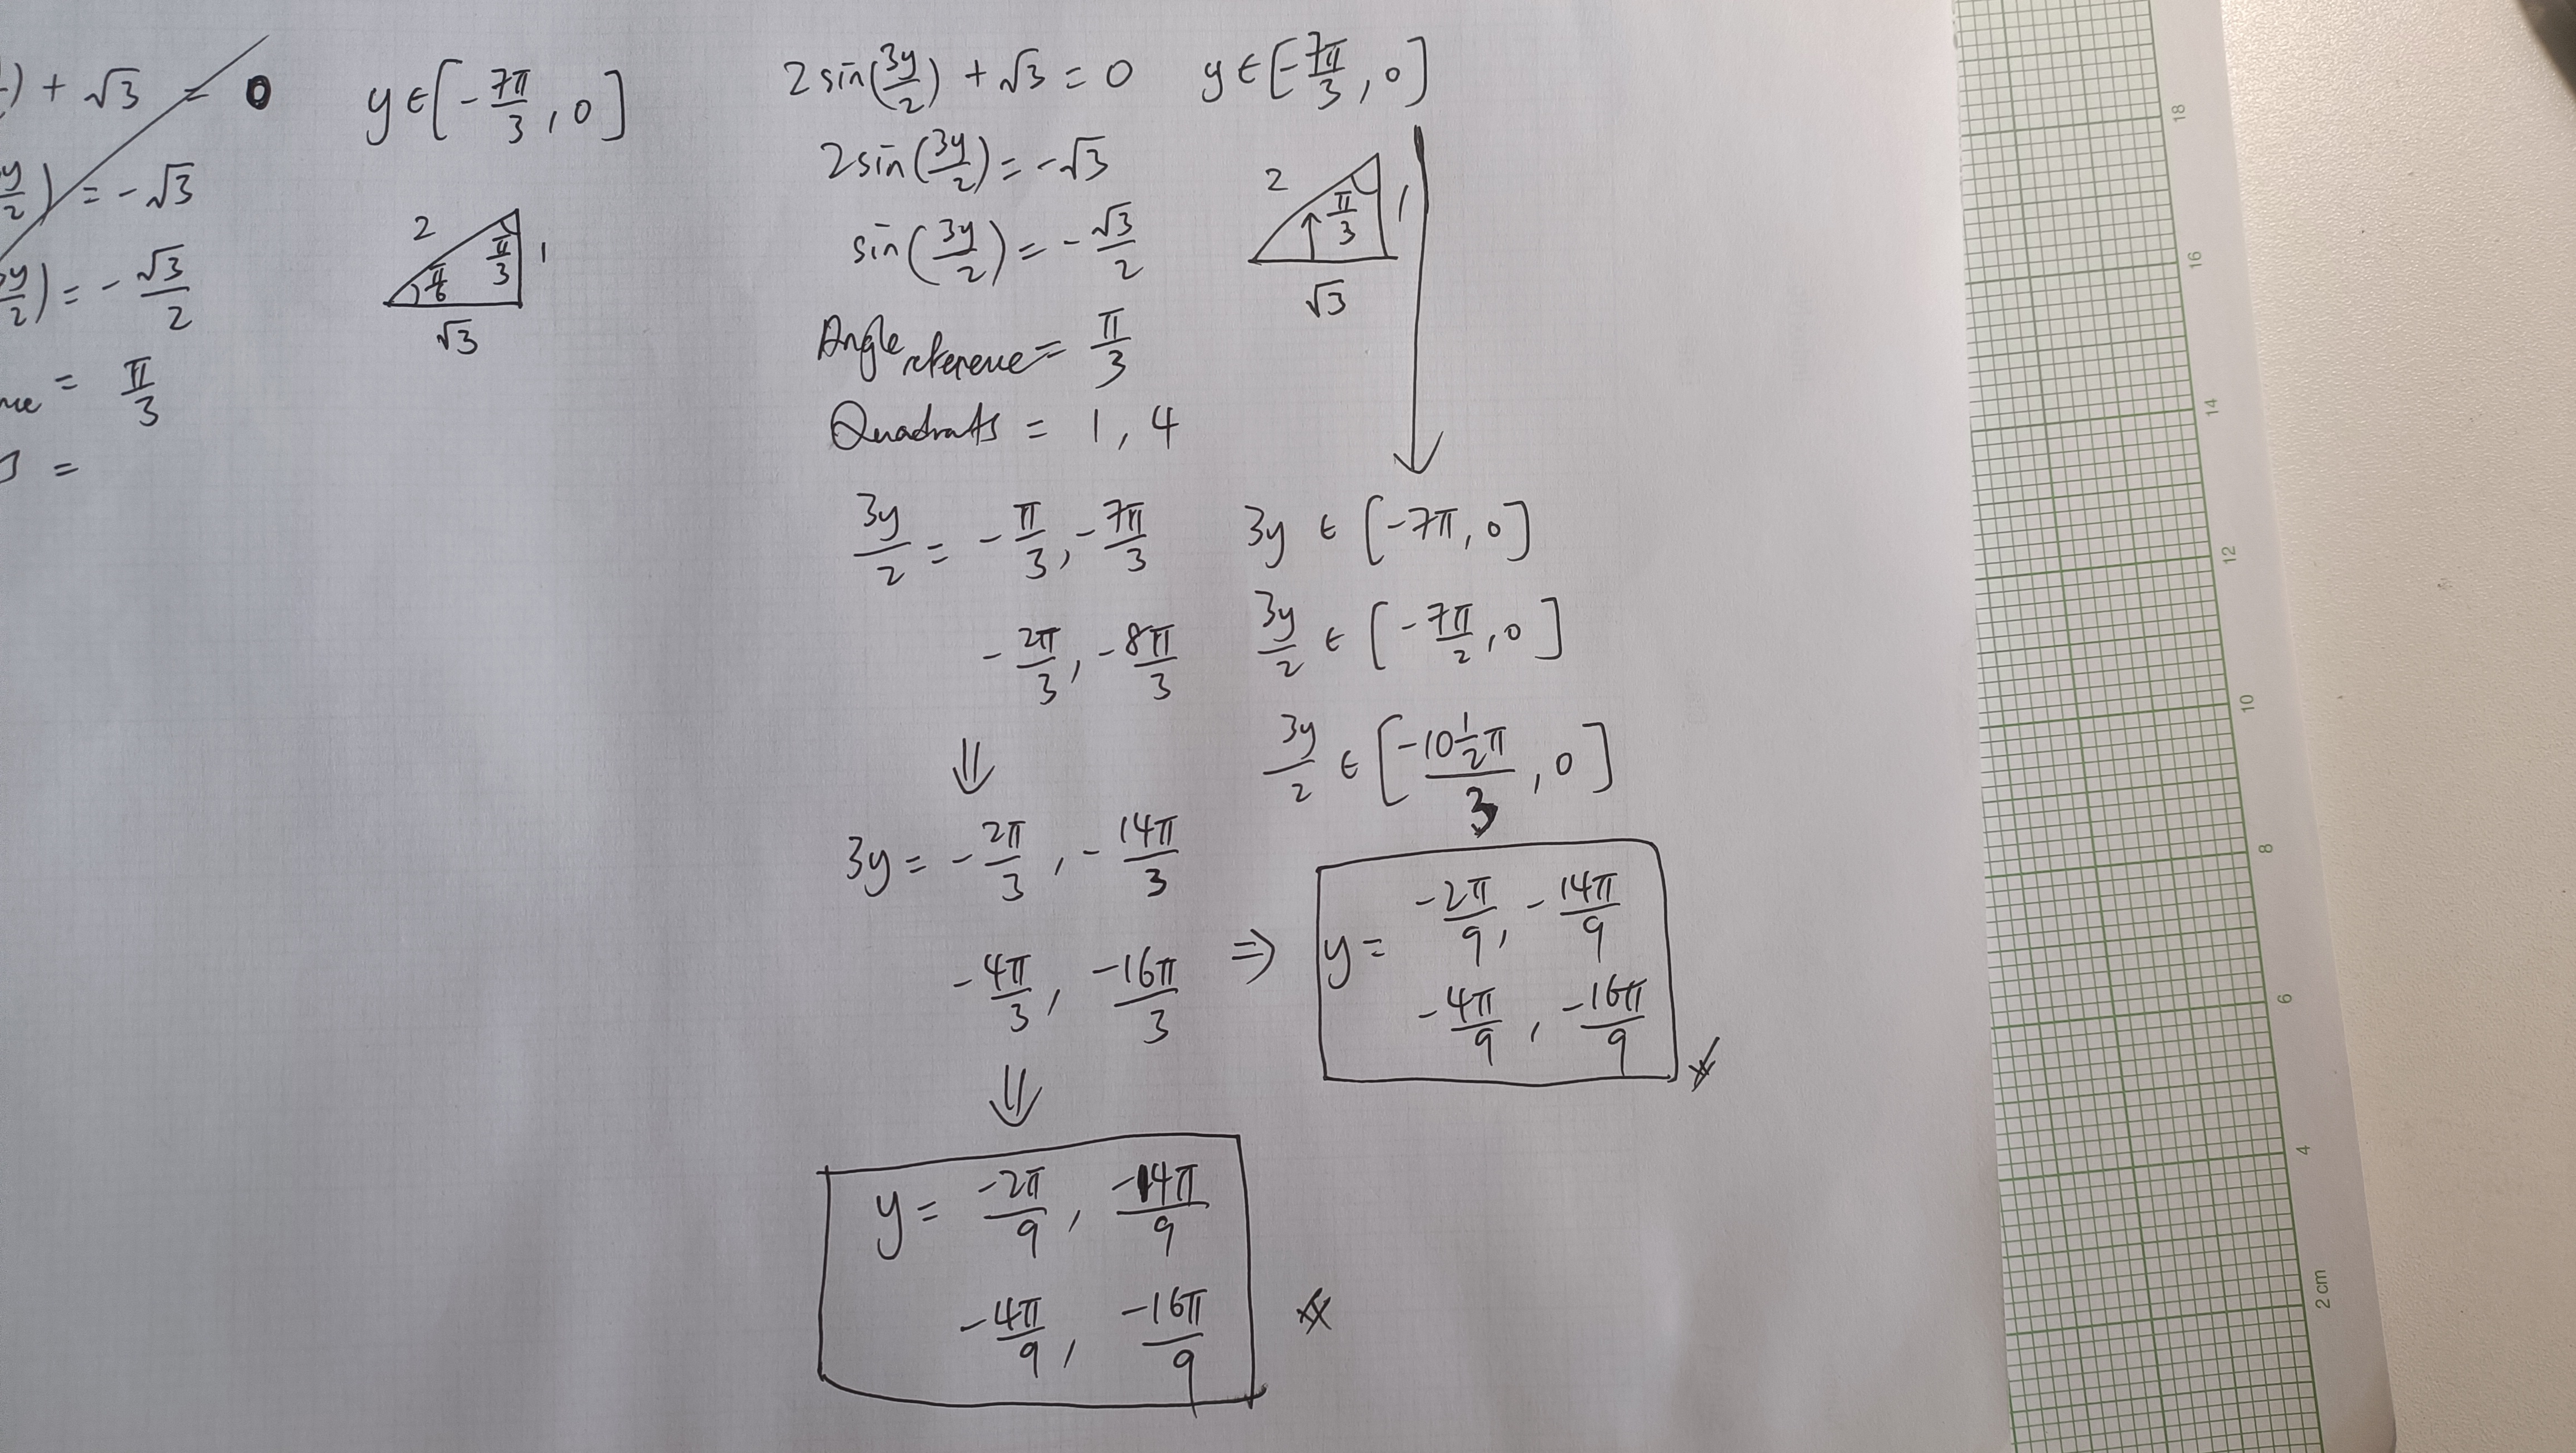 ) + √3 = 0
y/2) = -√3
y/2) = -√3/2
= π/3
=
y ∈ [-7π/3, 0]
2
π/3
1
π/6
√3
2sin(3y/2) + √3 = 0 y ∈ [-7π/3, 0]
2sin(3y/2) = -√3
sin(3y/2) = -√3/2
Angle reference = π/3
Quadrants = 1, 4
2
π/3
1
√3
3y/2 = -π/3, -7π/3
-2π/3, -8π/3
⇓
3y = -2π/3, -14π/3
-4π/3, -16π/3
⇓
y = -2π/9, -14π/9
-4π/9, -16π/9
3y ∈ [-7π, 0]
3y/2 ∈ [-7π/2, 0]
3y/2 ∈ [-10½π/3, 0]
⇒ y = -2π/9, -14π/9
-4π/9, -16π/9
18
16
14
12
10
8
6
4
2 cm